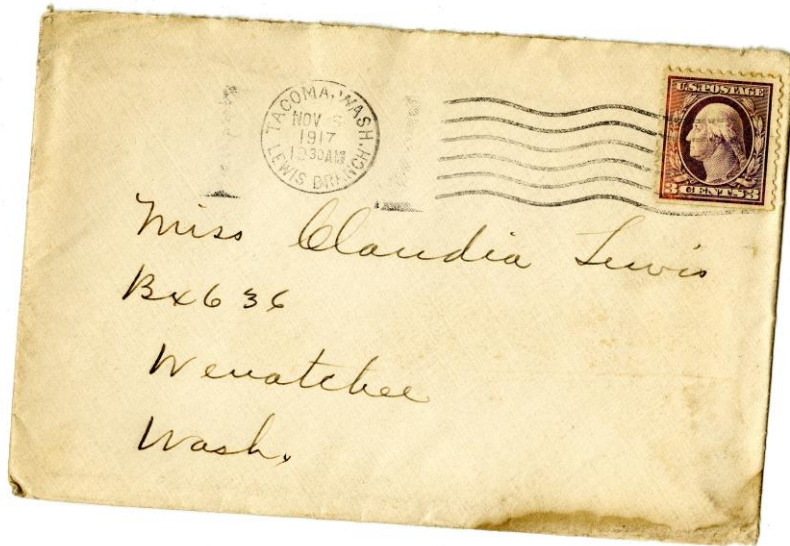 TACOMA, WASH.
NOV
1917
1230AM
LEWIS BRANCH.
U.S. POSTAGE
3 CENTS 3
Miss Claudia Lewis
Bx 636
Wenatchee
Wash.